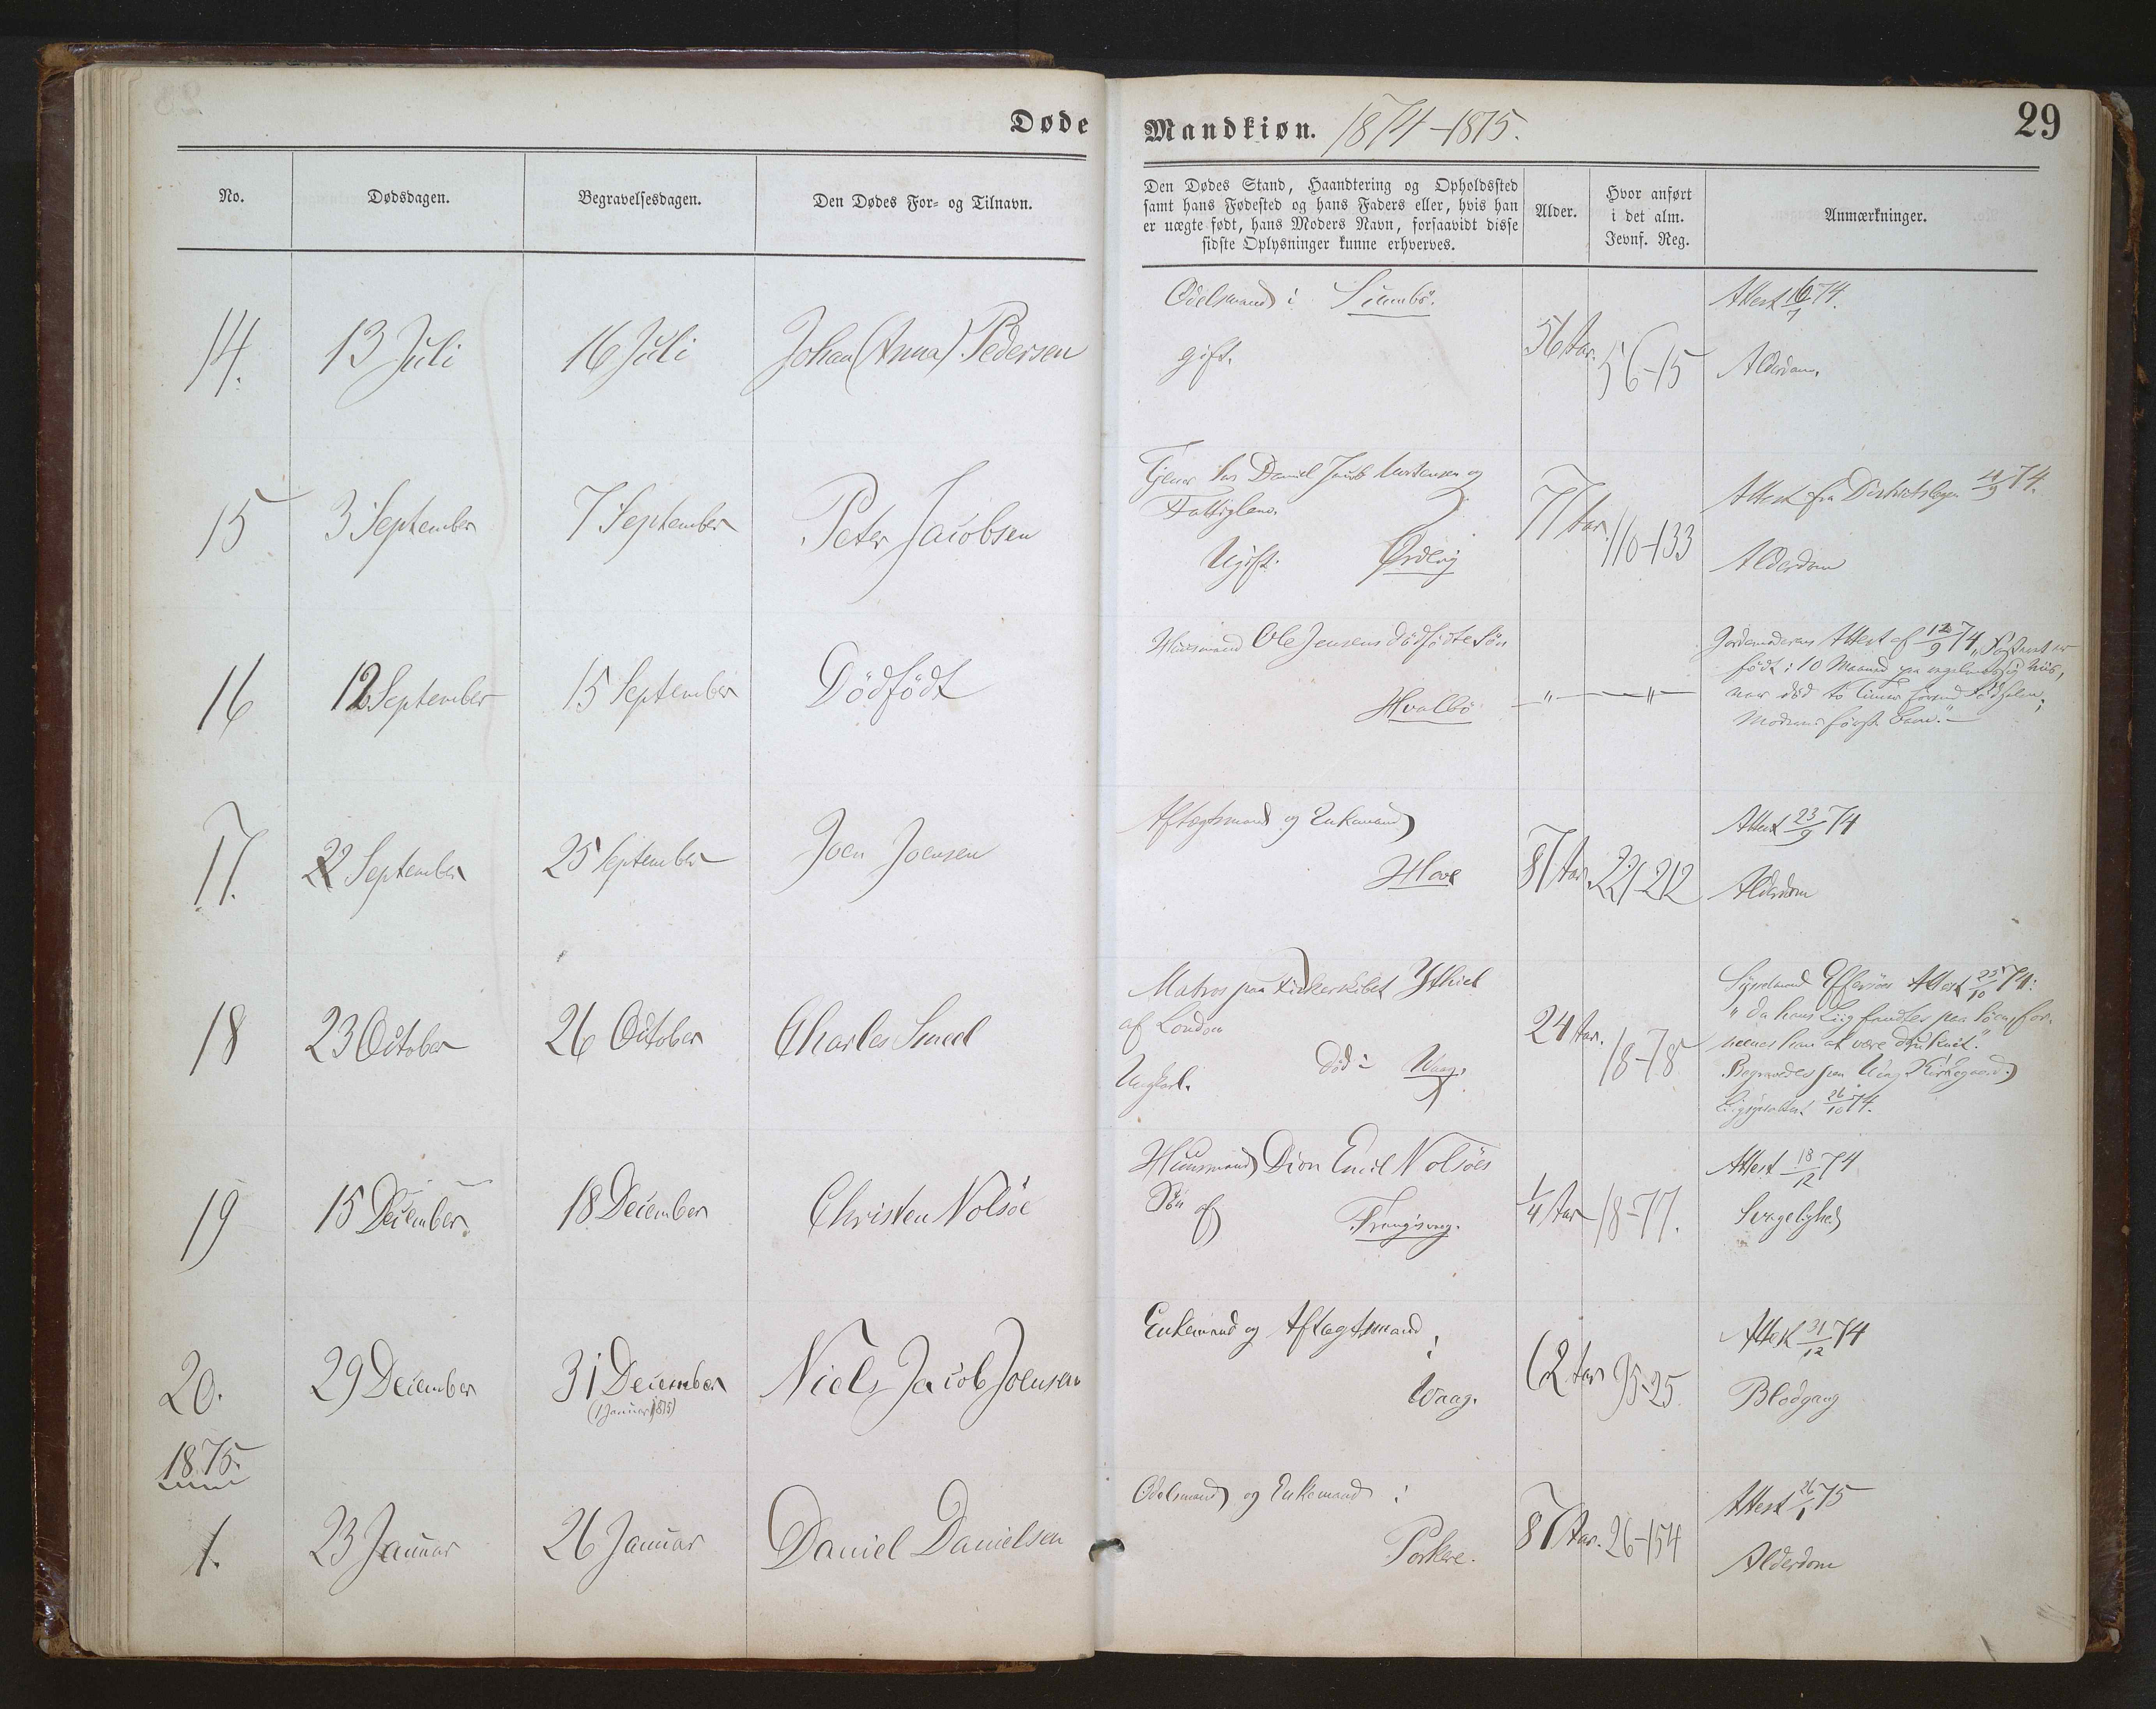 Døde
Mandkiøn. 1874-1875.
29
No.
Dødsdagen.
Begravelsesdagen.
Den Dødes For- og Tilnavn.
Den Dødes Stand, Haandtering og Opholdssted
samt hans Fødested og hans Faders eller, hvis han
er uægte født, hans Moders Navn, forsaavidt disse
sidste Oplysninger kunne erhverves.
Alder.
Hvor anført
i det alm.
Jevnf. Reg.
Anmærkninger.
14.
13 Juli
16 Juli
Johan (Anna) Pedersen
Odelsmand i Sumbö.
gift.
56 Aar.
56-15
Attest 16/7 74.
Alderdom.
15
3 September
7 September
Peter Jacobsen
Tjener hos Daniel Jacob Mortensen og
Fattiglem.
Ugift. Ördevig
77 Aar.
110-133
Attest fra Districtslægen 74.
Alderdom
16
12 September
15 September
Dödfödt
Huusmand Ole Jensens dödfödte Sön
Hvalbö
" "
Jordemoderens Attest af 12/9 74, "Fosteret er
födt i 10 Maaned paa
var död to Timer förend Födselen;
Moderens förste Barn."
17.
22 September
25 September
Joen Joensen
Aftægtsmand og Enkemand
Hove
87 Aar
221-212
Attest 23/9 74
Alderdom
18
23 October
26 October
Charles Smeel
Matros paa Fiskerskibet
af London
Ungkarl. död i Waag.
24 Aar.
18-78
Sysselmand Effersöes Attest 25/10 74:
"da hans Liig fandtes paa Söen, for-
menes han at være druknet."
Begravedes paa Waag Kirkegaard.
26/10 74.
19
15 December
18 December
Christen Nolsöe
Huusmand Dion Emil Nolsöes
Sön af
Frongisvaag.
1/4 Aar
18-77.
Attest 18/12 74
Svagelighed
20.
29 December
31 December
(1 Januar 1875)
Niels Jacob Joensen
Enkemand og Aftægtsmand
i
Waag.
62 Aar
95-25
Attest 31/12 74
Blodgang
1875.
1.
23 Januar
26 Januar
Daniel Danielsen
Odelsmand og Enkemand i
Porkere.
87 Aar.
26-154
Attest 26/1 75
Alderdom